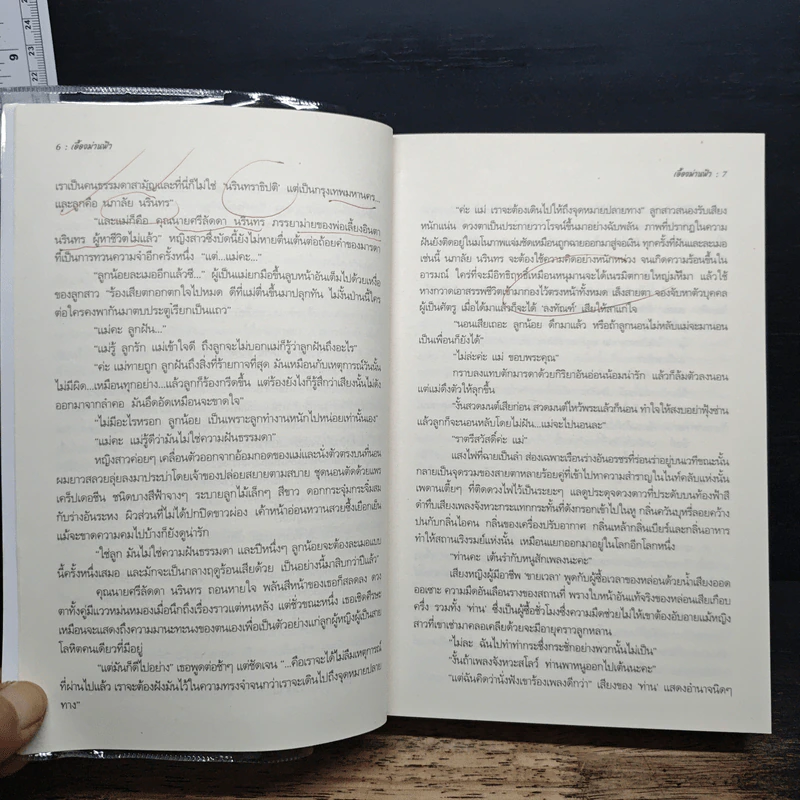 9
22
23
24
6 : เอื้อมม่านฟ้า
เราเป็นคนธรรมดาสามัญและที่นี่ก็ไม่ใช่ 'นรินทราธิปติ' แต่เป็นกรุงเทพมหานคร...
และลูกคือ นภาลัย นรินทร"
"และแม่ก็คือ...คุณนายศรีลัดดา นรินทร ภรรยาม่ายของพ่อเลี้ยงอินตา
นรินทร ผู้หาชีวิตไม่แล้ว" หญิงสาวซึ่งบัดนี้ยังไม่หายตื่นเต้นต่อถ้อยคำของมารดา
ที่เป็นการทวนความจำอีกครั้งหนึ่ง "แต่...แม่คะ..."
"ลูกน้อยละเมออีกแล้วซี..." ผู้เป็นแม่ยกมือขึ้นลูบหน้าอันเต็มไปด้วยเหงื่อ
ของลูกสาว "ร้องเสียตกอกตกใจไปหมด ดีที่แม่ตื่นขึ้นมาปลุกทัน ไม่งั้นป่านนี้ใคร
ต่อใครคงพากันมาตบประตูเรียกเป็นแถว"
"แม่คะ ลูกฝัน..."
"แม่รู้ ลูกรัก แม่เข้าใจดี ถึงลูกจะไม่บอกแม่ก็รู้ว่าลูกฝันถึงอะไร"
"ค่ะ แม่ทายถูก ลูกฝันถึงสิ่งที่ร้ายกาจที่สุด มันเหมือนกับเหตุการณ์วันนั้น
ไม่มีผิด...เหมือนทุกอย่าง...แล้วลูกก็ร้องกรี๊ดขึ้น แต่ร้องยังไงก็รู้สึกว่าเสียงนั้นไม่ดัง
ออกมาจากลำคอ มันอึดอัดเหมือนจะขาดใจ"
"ไม่มีอะไรหรอก ลูกน้อย เป็นเพราะลูกทำงานหนักไปหน่อยเท่านั้นเอง"
"แม่คะ แม่รู้ดีว่ามันไม่ใช่ความฝันธรรมดา"
หญิงสาวค่อยๆ เคลื่อนตัวออกจากอ้อมกอดของแม่และนั่งตัวตรงบนที่นอน
ผมยาวสลวยลุ่ยลงมาประบ่าโดยเจ้าของปล่อยสยายตามสบาย ชุดนอนตัดด้วยแพร
เคร็ปเดอชีน ชนิดบางสีฟ้าจางๆ ระบายลูกไม้เล็กๆ สีขาว ดอกกระจุ๋มกระจิ๋มสม
กับร่างอันระหง ผิวส่วนที่ไม่ได้ปกปิดขาวผ่อง เค้าหน้าอ่อนหวานสวยซึ้งเยือกเย็น
แม้จะขาดความคมไปบ้างก็ยังดูน่ารัก
"ใช่ลูก มันไม่ใช่ความฝันธรรมดา และปีหนึ่งๆ ลูกน้อยจะต้องละเมอแบบ
นี้ครั้งหนึ่งเสมอ และมักจะเป็นกลางฤดูร้อนเสียด้วย เป็นอย่างนี้มาสิบกว่าปีแล้ว"
คุณนายศรีลัดดา นรินทร ถอนหายใจ พลันสีหน้าของเธอก็สลดลง ดวง
ตาทั้งคู่มีแววหม่นหมองเมื่อนึกถึงเรื่องราวแต่หนหลัง แต่ชั่วขณะหนึ่ง เธอเชิดศีรษะ
เหมือนจะแสดงถึงความมานะทะนงของตนเองเพื่อเป็นตัวอย่างแก่ลูกผู้หญิงผู้เป็นสาย
โลหิตคนเดียวที่มีอยู่
"แต่มันก็ดีไปอย่าง" เธอพูดต่อช้าๆ แต่ชัดเจน "...คือเราจะได้ไม่ลืมเหตุการณ์
ที่ผ่านไปแล้ว เราจะต้องฝังมันไว้ในความทรงจำจนกว่าเราจะเดินไปถึงจุดหมายปลาย
ทาง"
เอื้อมม่านฟ้า : 7
"ค่ะ แม่ เราจะต้องเดินไปให้ถึงจุดหมายปลายทาง" ลูกสาวสนองรับเสียง
หนักแน่น ดวงตาเป็นประกายวาวโรจน์ขึ้นมาอย่างฉับพลัน ภาพที่ปรากฏในความ
ฝันยังติดอยู่ในมโนภาพแจ่มชัดเหมือนถูกฉายออกมาสู่จอเงิน ทุกครั้งที่ฝันและละเมอ
เช่นนี้ นภาลัย นรินทร จะต้องใช้ความคิดอย่างหนักหน่วง จนเกิดความร้อนขึ้นใน
อารมณ์ ใคร่ที่จะมีอิทธิฤทธิ์เหมือนหนุมานจะได้เนรมิตกายใหญ่มหึมา แล้วใช้
หางกวาดเอาสรรพชีวิตเข้ามากองไว้ตรงหน้าทั้งหมด เล็งสายตา จองจับหาตัวบุคคล
ผู้เป็นศัตรู เมื่อได้มาแล้วก็จะได้ 'ลงทัณฑ์' เสียให้สาแก่ใจ
"นอนเสียเถอะ ลูกน้อย ดึกมาแล้ว หรือถ้าลูกนอนไม่หลับแม่จะมานอน
เป็นเพื่อนก็ยังได้"
"ไม่ล่ะค่ะ แม่ ขอบพระคุณ"
กราบลงแทบตักมารดาด้วยกิริยาอันอ่อนน้อมน่ารัก แล้วก็ล้มตัวลงนอน
แต่แม่ดึงตัวให้ลุกขึ้น
"งั้นสวดมนต์เสียก่อน สวดมนต์ไหว้พระแล้วก็นอน ทำใจให้สงบอย่าฟุ้งซ่าน
แล้วลูกก็จะนอนหลับโดยไม่ฝัน...แม่จะไปนอนละ"
"ราตรีสวัสดิ์ค่ะ แม่"
แสงไฟที่ฉายเป็นลำ ส่องเฉพาะเรือนร่างอันอรชรที่ร่อนร่ายอยู่บนเวทีขณะนั้น
กลายเป็นจุดรวมของสายตาหลายร้อยคู่ที่เข้าไปหาความสำราญในไนท์คลับแห่งนั้น
เพดานเตี้ยๆ ที่ติดดวงไฟไว้เป็นระยะๆ แลดูประดุจดวงดาวที่ประดับบนท้องฟ้าสี
ดำทึบเสียงเพลงจังหวะกระแทกกระทั้นที่ดังกรอกเข้าไปในหู กลิ่นควันบุหรี่ลอยคว้าง
ปนกับกลิ่นไอคน กลิ่นของเครื่องปรับอากาศ กลิ่นเหล้ากลิ่นเบียร์และกลิ่นอาหาร
ทำให้สถานเริงรมย์แห่งนั้น เหมือนแยกออกมาอยู่ในโลกอีกโลกหนึ่ง
"ท่านคะ เต้นรำกับหนูสักเพลงนะคะ"
เสียงหญิงผู้มีอาชีพ 'ขายเวลา' พูดกับผู้ซื้อเวลาของหล่อนด้วยน้ำเสียงออด
ออเซาะ ความมืดอันเลือนรางของสถานที่ พรางใบหน้าอันแท้จริงของหล่อนเสียเกือบ
ครึ่ง รวมทั้ง 'ท่าน' ซึ่งเป็นผู้ซื้อชั่วโมงซึ่งความมืดช่วยไม่ให้เขาต้องอับอายแม้หญิง
สาวที่เขาเข้ามาคลอเคลียด้วยจะมีอายุคราวลูกหลาน
"ไม่ละ ฉันไปทำท่ากระซิ่งกระซั่กอย่างพวกนั้นไม่เป็น"
"งั้นถ้าเพลงจังหวะสโลว์ ท่านพาหนูออกไปเต้นนะคะ"
"แต่ฉันคิดว่านั่งฟังเขาร้องเพลงดีกว่า" เสียงของ 'ท่าน' แสดงอำนาจนิดๆ